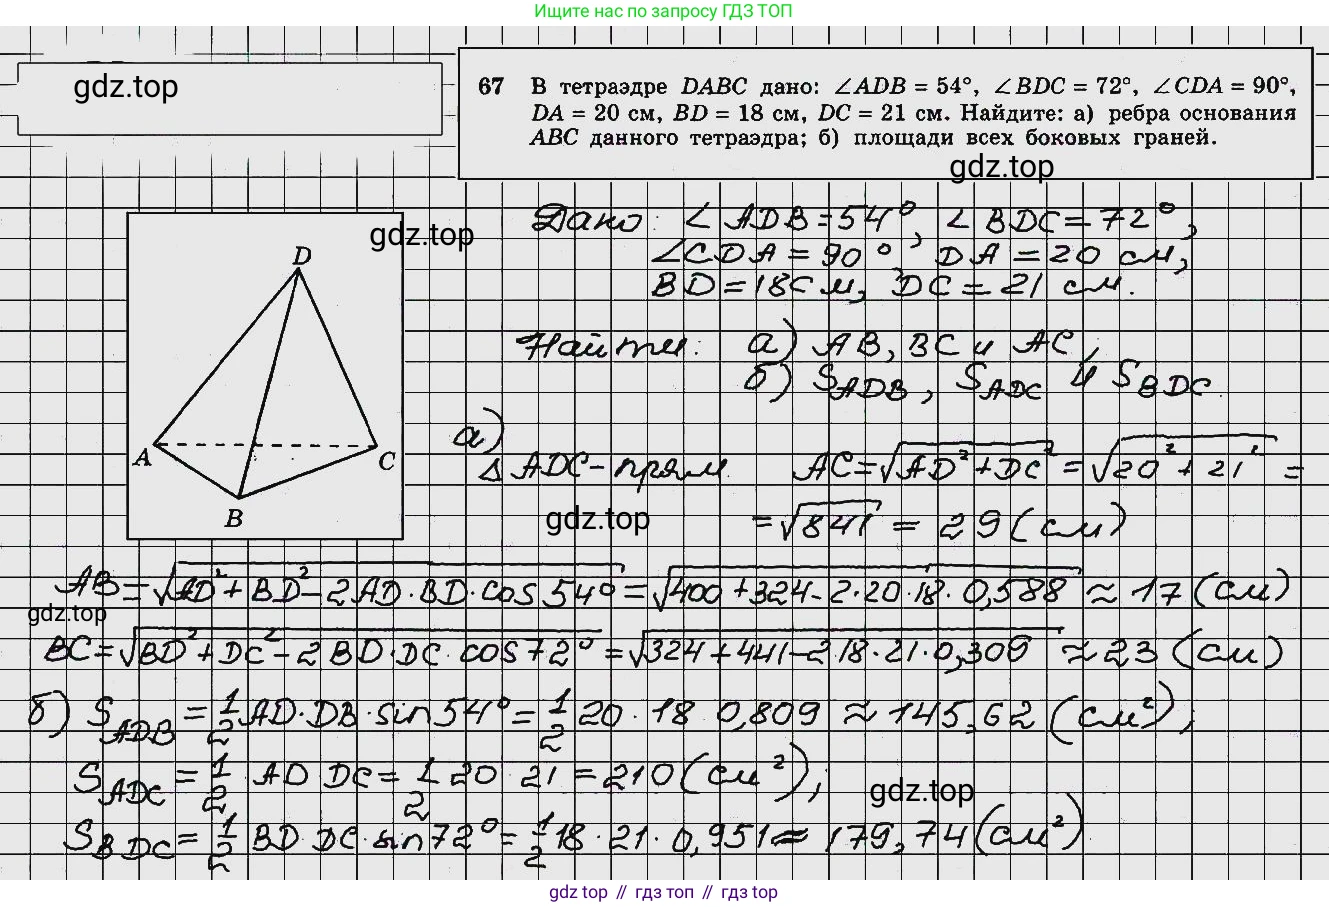 Ищите нас по запросу ГДЗ ТОП
gdz.top
67 В тетраэдре DABC дано: ∠ADB = 54°, ∠BDC = 72°, ∠CDA = 90°,
DA = 20 см, BD = 18 см, DC = 21 см. Найдите: а) ребра основания
ABC данного тетраэдра; б) площади всех боковых граней.
gdz.top
Дано: ∠ADB = 54°, ∠BDC = 72°,
∠CDA = 90°, DA = 20 см,
BD = 18 см, DC = 21 см.
gdz.top
D
A
C
B
Найти: а) AB, BC и AC;
б) S_ADB, S_ADC и S_BDC
а)
Δ ADC - прям. AC = √(AD² + DC²) = √(20² + 21²) =
= √841 = 29 (см)
gdz.top
AB = √(AD² + BD² - 2AD·BD·cos 54°) = √(400 + 324 - 2·20·18·0,588) ≈ 17 (см)
gdz.top
BC = √(BD² + DC² - 2BD·DC·cos72°) = √(324 + 441 - 2·18·21·0,309) ≈ 23 (см)
б) S_ADB = 1/2 AD·DB·sin 54° = 1/2 20·18 0,809 ≈ 145,62 (см²);
S_ADC = 1/2 AD DC = 1/2 20 21 = 210 (см²);
gdz.top
S_BDC = 1/2 BD·DC·sin72° = 1/2 18·21·0,951 ≈ 179,74 (см²)
gdz top // гдз топ // gdz top